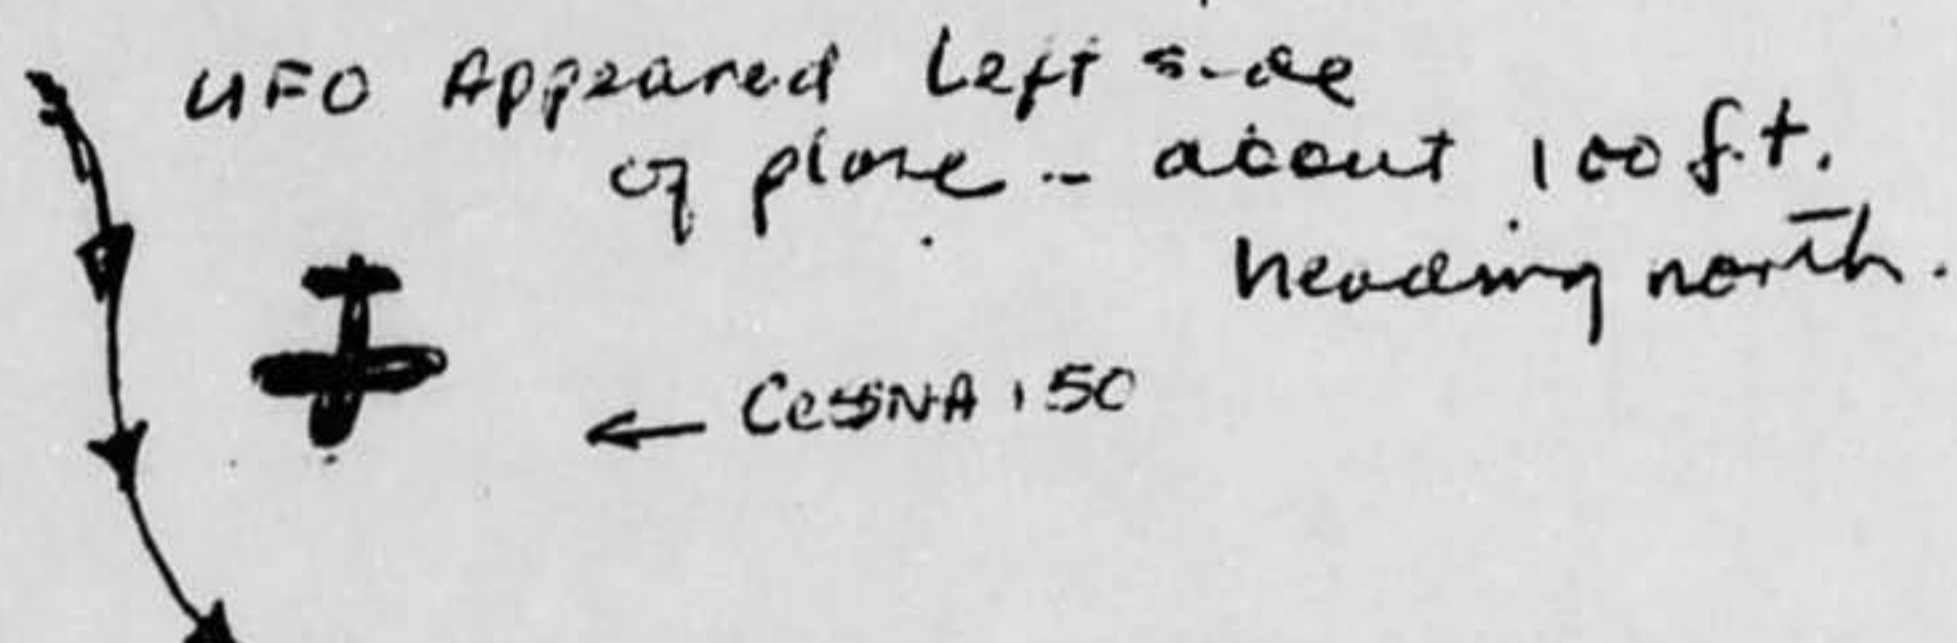 UFO Appeared Left side
of plane -- about 100 ft.
heading north.
← Cessna 150